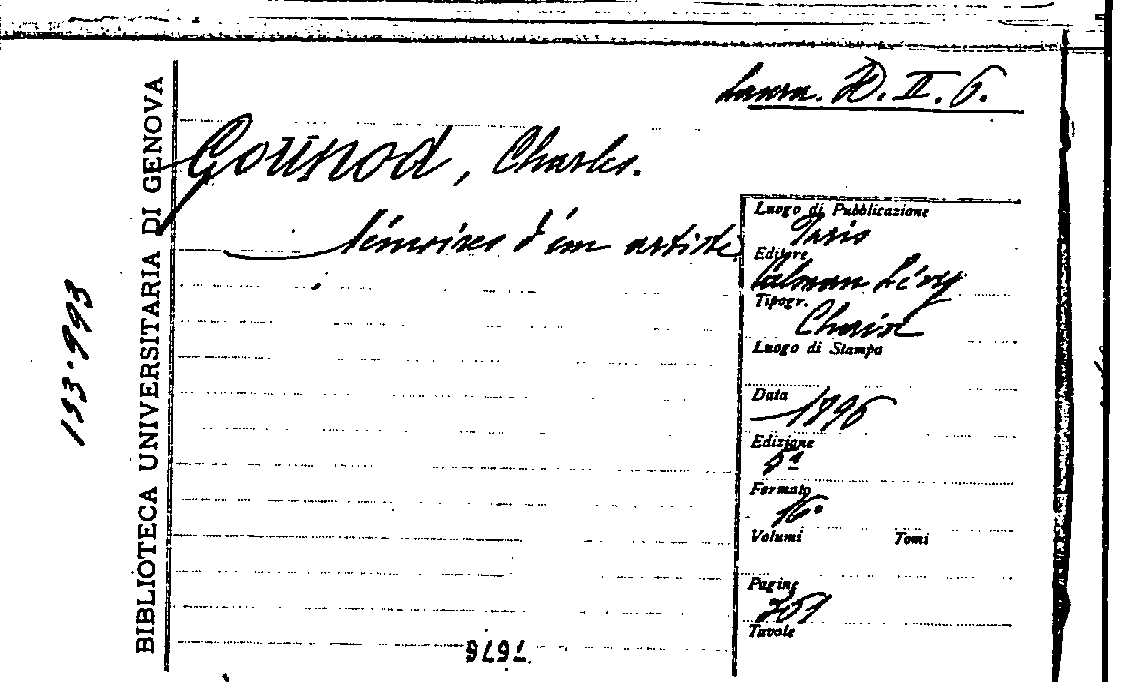 Laura. D. II. 6.
Gounod, Charles.
Mémoires d'un artiste.
BIBLIOTECA UNIVERSITARIA DI GENOVA
153.993
Luogo di Pubblicazione
Paris
Editore
Calman Lévy
Tipogr.
Chaix
Luogo di Stampa
Data
1896
Edizione
5ª
Formato
16°
Volumi Tomi
Pagine
Tavole
7676